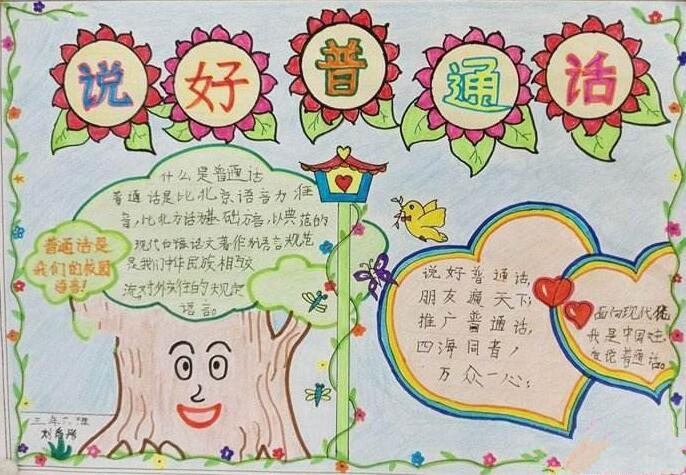 说好普通话
什么是普通话
普通话是比北京语音为 准
音，比北方话为基础方言，以典范的
现代白话语文著作为语言规范
是我们中华民族相互交
流对外交往的规定
语言。
普通话是
我们的校园
语言！
说好普通话，
朋友遍天下；
推广普通话，
四海同音，
万众一心；
面向现代
我是中国
说普通话。
三年
刘